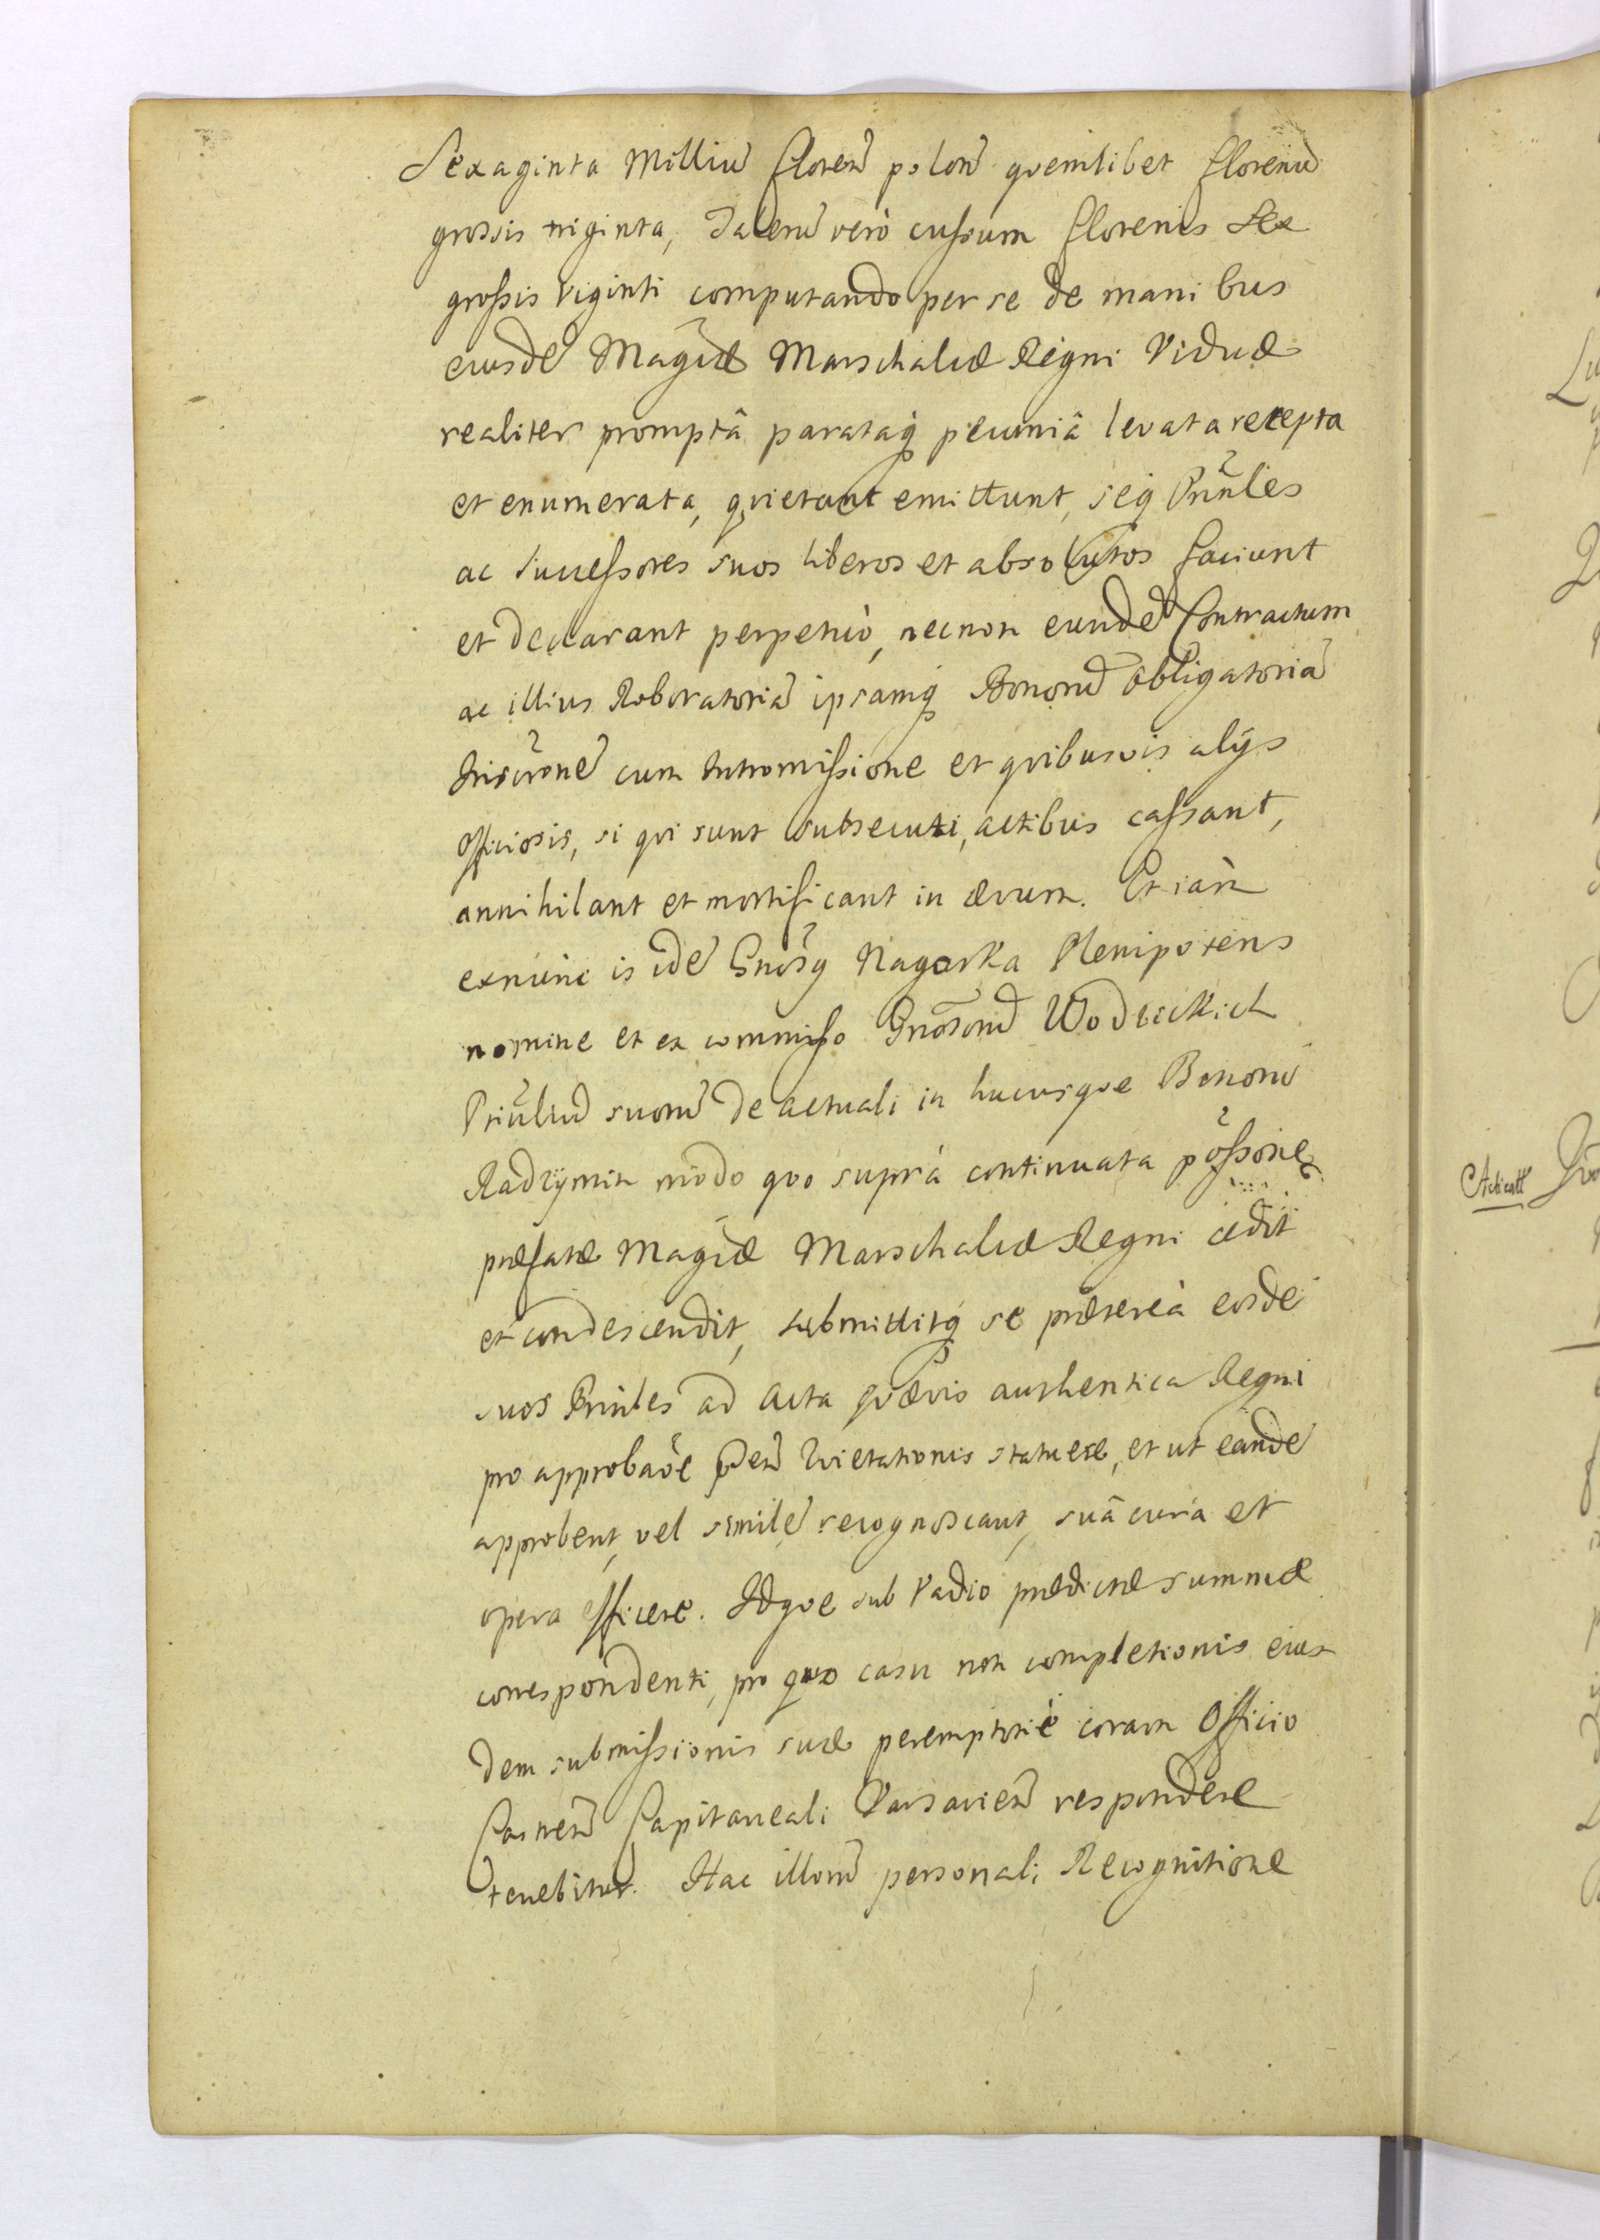 Sexaginta Milliu Floren polon quemlibet florenu
grossis triginta, Taleru verò cussum florenis sex
grossis viginti computando per se de manibus
eiusde Magcæ Marschalcæ Regni Viduæ
realiter promptâ parataq pecuniâ levata recepta
et enumerata, quietant emittunt, seq Prinles
ac successores suos liberos et absolutos faciunt
et declarant perpetuò, necnon eunde Contractum
ac illius Roboratoria ipsamq Bonoru obligatoria
Inscrõne cum Intromissione et quibusvis alÿs
officiosis, si qui sunt subsecuti, actibus cassant,
annihilant et mortificant in ævum. Et iàm
exnunc is ide Gnosq Nagorka Plenipotens
nomine et ex commisso Gnosoru Wodzickich
Prinliu suoru de actuali in hucusque Bonoru
Radzymin modo quo suprà continuata possõne
præfatæ Magcæ Marschalcæ Regni cedit
et condescendit, submittitq se prætereà eosde
suos Prinles ad Acta quævis authentica Regni
pro approbaõe pnten Quietationis statuere, et ut eande
approbent, vel simile recognoscant, suâ cura et
opera efficere. Idque sub vadio prædictæ summæ
correspondenti, pro quo casu non completionis eius
dem submissionis suæ peremptoriè coram Officio
Castren Capitaneali Varsavien respondere
tenebitur. Hac illoru personali Recognitione
Acticatt